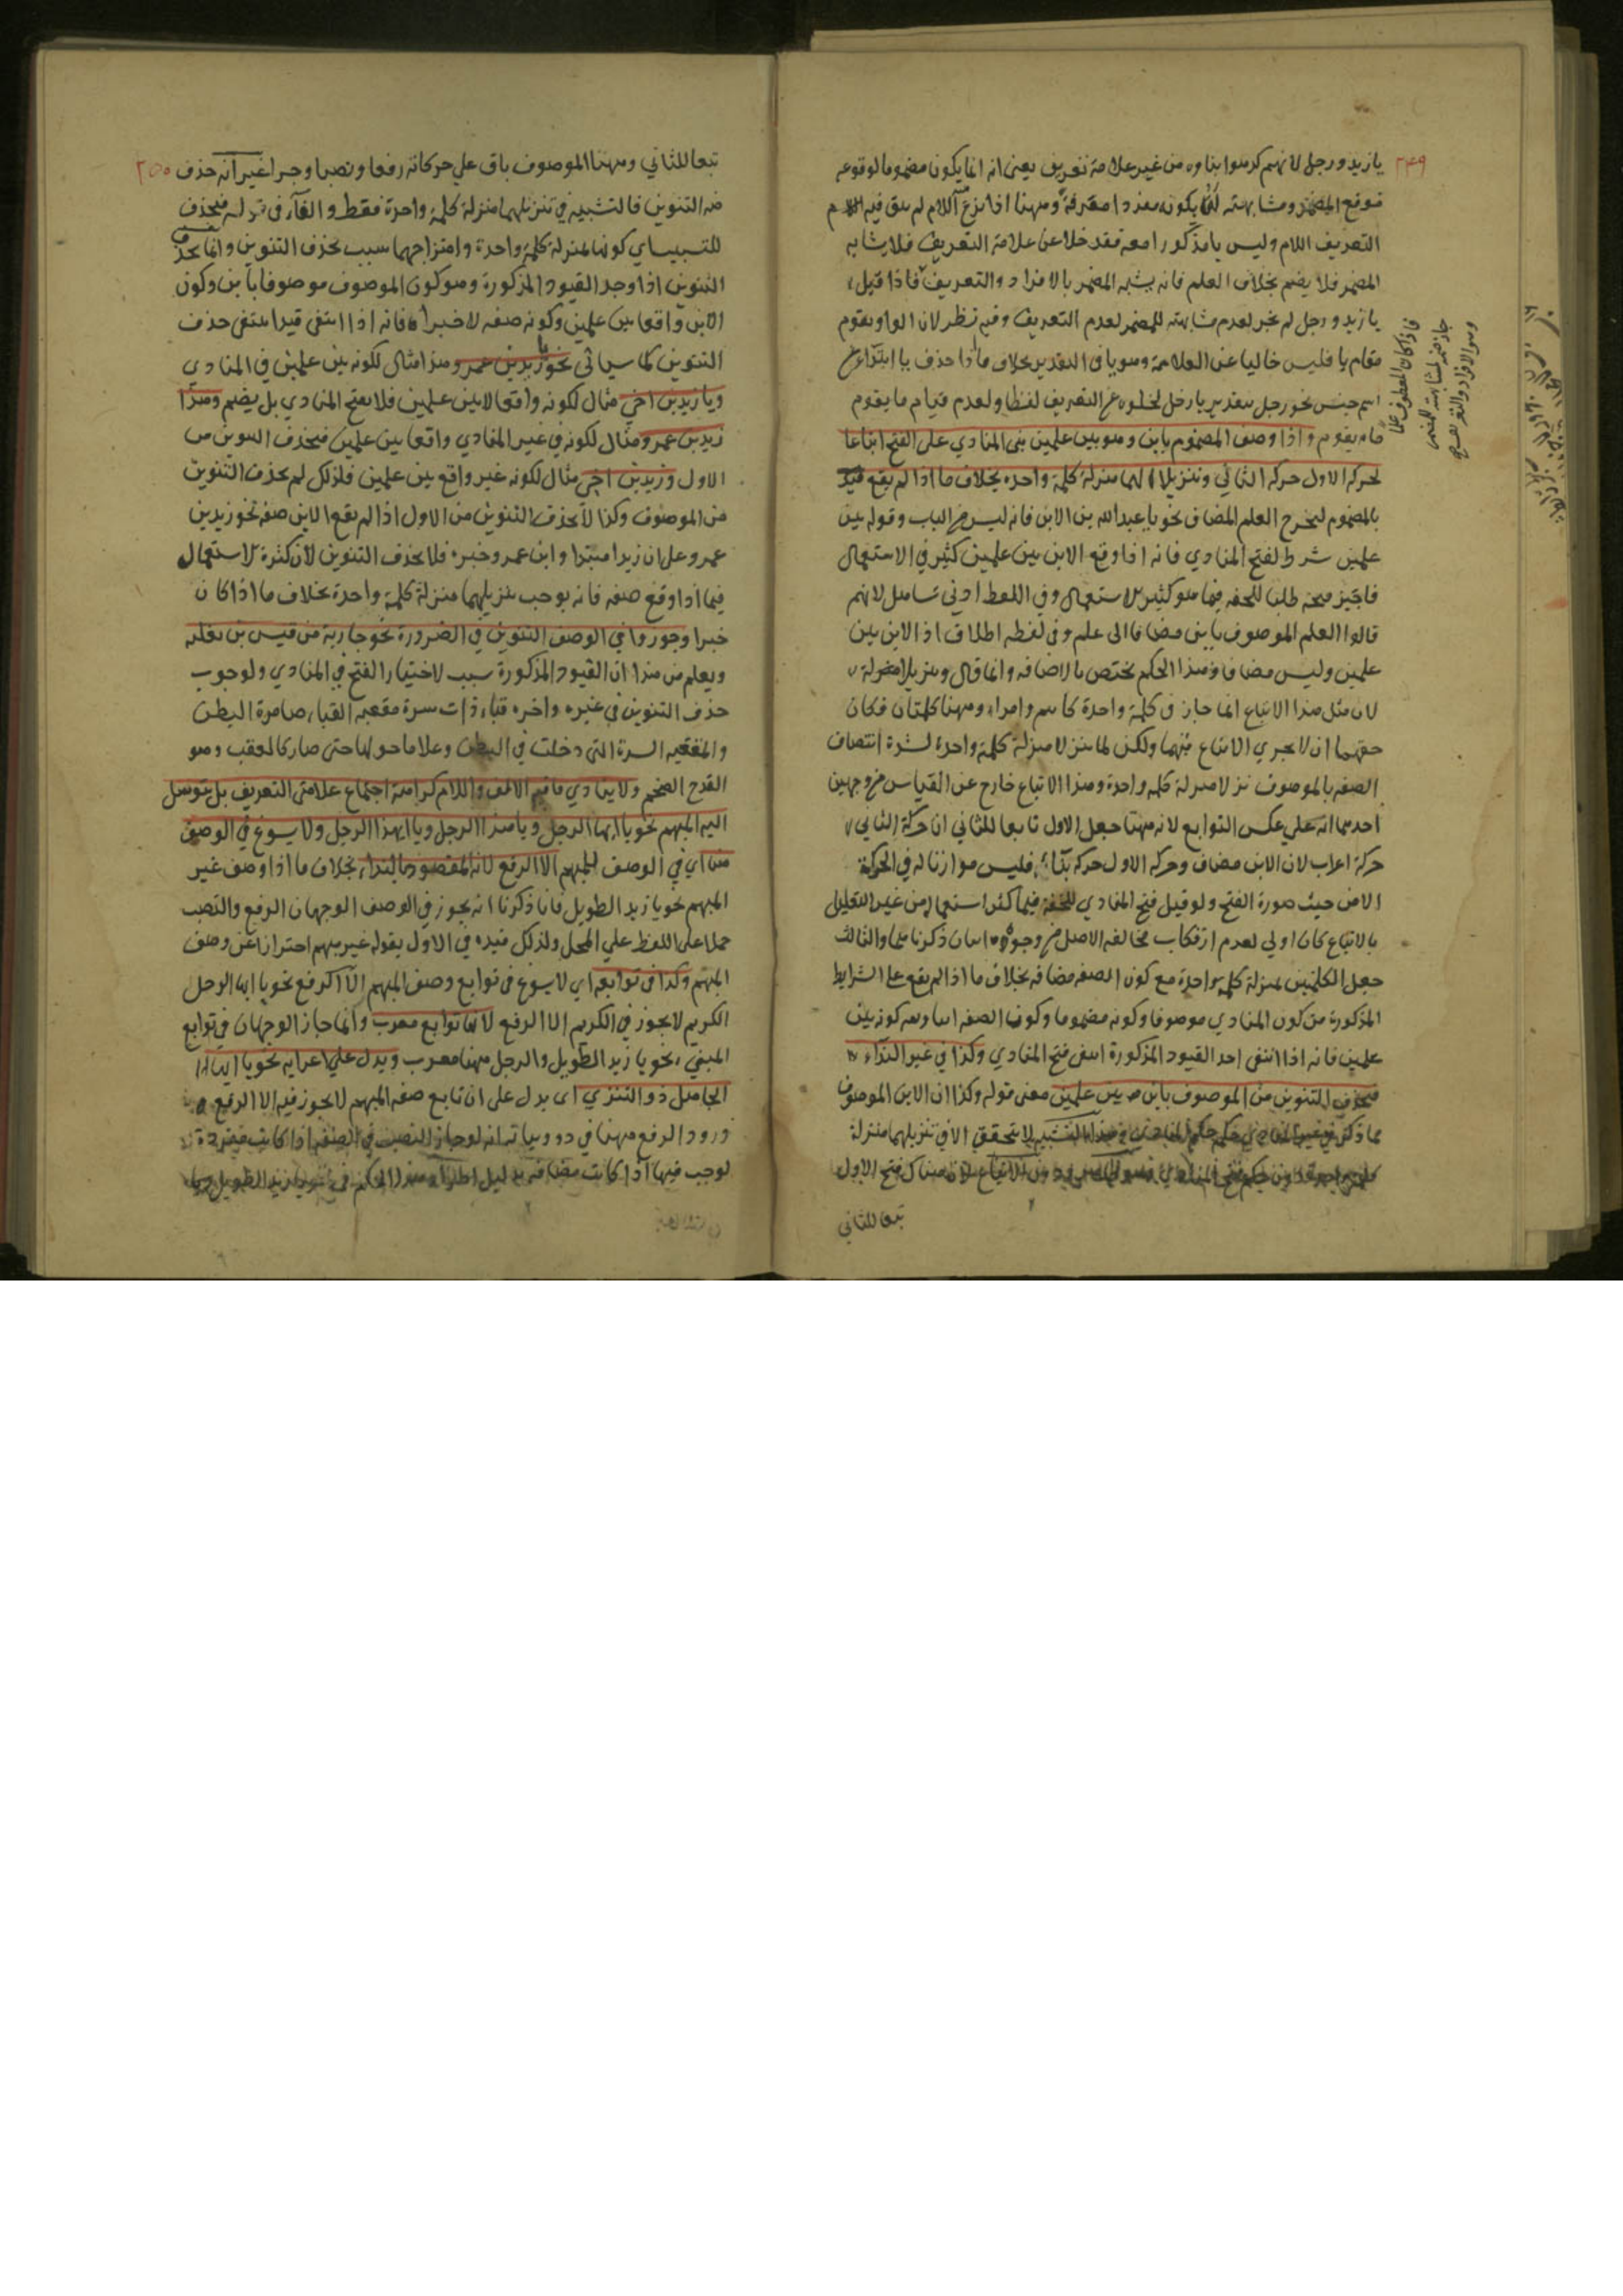 ٢٤٩
يا زيد ورجل لانهم كرهوا بناوه من غير علامة تعريف يعنى انه انما يكون مضموما لوقوعه
موقع المضمر ومشابهته له يكونه مفردا معرفة وههنا اذا نزع اللام لم يبق فيه
التعريف اللام وليس يا مذكورا معه فقد خلا عن علامة التعريف فلا يشابه
المضمر فلا يضم بخلاف العلم فانه يشبه المضمر بالافراد والتعريف فاذا قيل
يا زيد ورجل لم يجز لعدم مشابهته للمضمر لعدم التعريف وفيه نظر لان الواو يقوم
مقام يا فليس خاليا عن العلامة وهو يا فى التقدير بخلاف ما اذا حذف يا ابتداء عن
اسم جنس نحو رجل بتقدير يا رجل لخلوه عن التعريف لفظا ولعدم قيام ما يقوم
مقامه واذا وصف المضموم بابن وهو بين علمين بنى المنادي على الفتح اتباعا
لحركة الاول حركة الثاني وتنزيلا لهما منزلة كلمة واحدة بخلاف ما اذا لم يقع قيد
بالمضموم ليخرج العلم المضاف نحو يا عبد الله بن الابن فانه ليس من الباب وقوله بين
علمين شرط لفتح المنادي فانه اذا وقع الابن بين علمين كثير في الاستعمال
فاجيز فتحه طلبا للخفه فيما هو كثير الاستعمال وفى اللفظ ادنى تساهل لانهم
قالوا العلم الموصوف بابن مضافا الى علم وفى لفظه اطلاق اذ الابن بين
علمين وليس مضافا وهذا الحكم يختص بالاضافه وانما قال وتنزيلا منزلة
لان مثل هذا الاتباع انما جاز فى كلمة واحدة كابنم وامرا وههنا كلمتان فكان
حقهما ان لا يجري الاتباع فيهما ولكن لما نزلا منزلة كلمة واحدة لشدة اتصاف
الصفه بالموصوف نزلا منزلة كلمة واحدة وهذا الاتباع خارج عن القياس من وجهين
احدهما انه علي عكس التوابع لانه ههنا جعل الاول تابعا للثاني ان حركة الثاني
حركة اعراب لان الابن مضاف وحركة الاول حركة بناء فليس موازنا له في الحركة
الا من حيث صورة الفتح ولو قيل فتح المنادي للخفه فيما كثر استعماله من غير التعليل
بالاتباع كان اولى لعدم ارتكاب مخالفه الاصل من وجوه اثنان ذكرناهما والثالث
جعل الكلمتين بمنزلة كلمة واحدة مع كون الصفه مضافه بخلاف ما اذا لم يقع على الشرايط
المذكورة من كون المنادي موصوفا وكونه مضموما وكون الصفه ابنا ومع كونه بين
علمين فانه اذا انتفى احد القيود المذكورة انتفى فتح المنادي وكذا في غير النداء
فيحذف التنوين من الموصوف بابن بين علمين معنى قوله وكذا ان الابن الموصوف
بما ذكر في غير المنادي حكم التشبيه لا يتحقق الا في تنزيلهما منزلة
فتح الاول
تبعا للثاني
فاذا كان المعطوف علما
جاز ضمه لمشابهته للمضمر
وهو الافراد والتعريف صح
٢٥٠
تبعا للثاني وههنا الموصوف باق علي حركاته رفعا ونصبا وجرا غير انه حذف
منه التنوين فالتشبيه في تنزيلهما منزلة كلمة واحدة فقط والفاء فى قوله فيحذف
للتسبيب اي كونهما بمنزلة كلمة واحدة وامتزاجهما سبب بحذف التنوين وانما يحذف
التنوين اذا وجد القيود المذكورة وهو كون الموصوف موصوفا بابن وكون
الابن واقعا بين علمين وكونه صفه لا خبرا فانه اذا انتفى قيد انتفى حذف
التنوين كما سياتى نحو يا زيد بن عمرو هذا مثال لكونه بين علمين في المنادي
ويا زيد بن اخي مثال لكونه واقعا لا بين علمين فلا يفتح المنادي بل يضم وهذا
زيد بن عمرو مثال لكونه في غير المنادي واقعا بين علمين فيحذف التنوين من
الاول وزيد بن اخي مثال لكونه غير واقع بين علمين فلذلك لم يحذف التنوين
من الموصوف وكذا لا يحذف التنوين من الاول اذا لم يقع الابن صفه نحو زيد بن
عمرو على ان زيدا مبتدا وابن عمرو خبره فلا يحذف التنوين لان كثرة الاستعمال
فيما اذا وقع صفه فانه يوجب تنزيلهما منزلة كلمة واحدة بخلاف ما اذا كان
خبرا وجوزوا في الوصف التنوين في الضرورة نحو جارية من قيس بن ثعلبه
ويعلم من هذا ان القيود المذكورة سبب لاختيار الفتح في المنادي ولوجوب
حذف التنوين في غيره واخره قباء ذات سرة مقعبه القباء ضامرة البطن
والمقعبه السرة التى دخلت في البطن وعلا ما حولها حتى صار كالمقعب وهو
القدح الضخم ولا ينادي ما فيه الالف واللام كراهة اجتماع علامتى التعريف بل يتوسل
اليه المبهم نحو يا ايها الرجل ويا هذا الرجل ويا ايهذا الرجل ولا يسوغ في الوصف
هنا اي في الوصف للمبهم الا الرفع لانه المقصود بالنداء بخلاف ما اذا وصف غير
المبهم نحو يا زيد الطويل فانا ذكرنا انه يجوز في الوصف الوجهان الرفع والنصب
حملا على اللفظ علي المحل ولذلك قيده في الاول بقوله غير مبهم احترازا عن وصف
المبهم وكذا فى توابعه اي لا يسوغ فى توابع وصف المبهم الا الرفع نحو يا ايها الرجل
الكريم لا يجوز في الكريم الا الرفع لانها توابع معرب وانما جاز الوجهان فى توابع
المبني نحو يا زيد الطويل والرجل ههنا معرب ويدل علي اعرابه نحو يا ايها
الجاهل ذو التنزي اى يدل على ان تابع صفه المبهم لا يجوز فيه الا الرفع
ورود الرفع ههنا في ذو وبيانه انه لو جاز النصب في الصفه اذا كانت مفردة
لوجب فيها اذا كانت مضافه بدليل